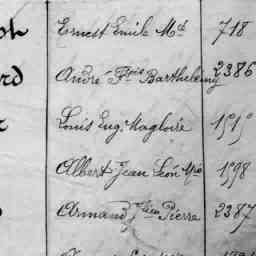 oh Ernest Emile M^d 718
rd André F^çois Barthelemy 2386
Louis Eug. Magloire
Albert Jean Léon M^ie 1598
Armand Pierre 2387